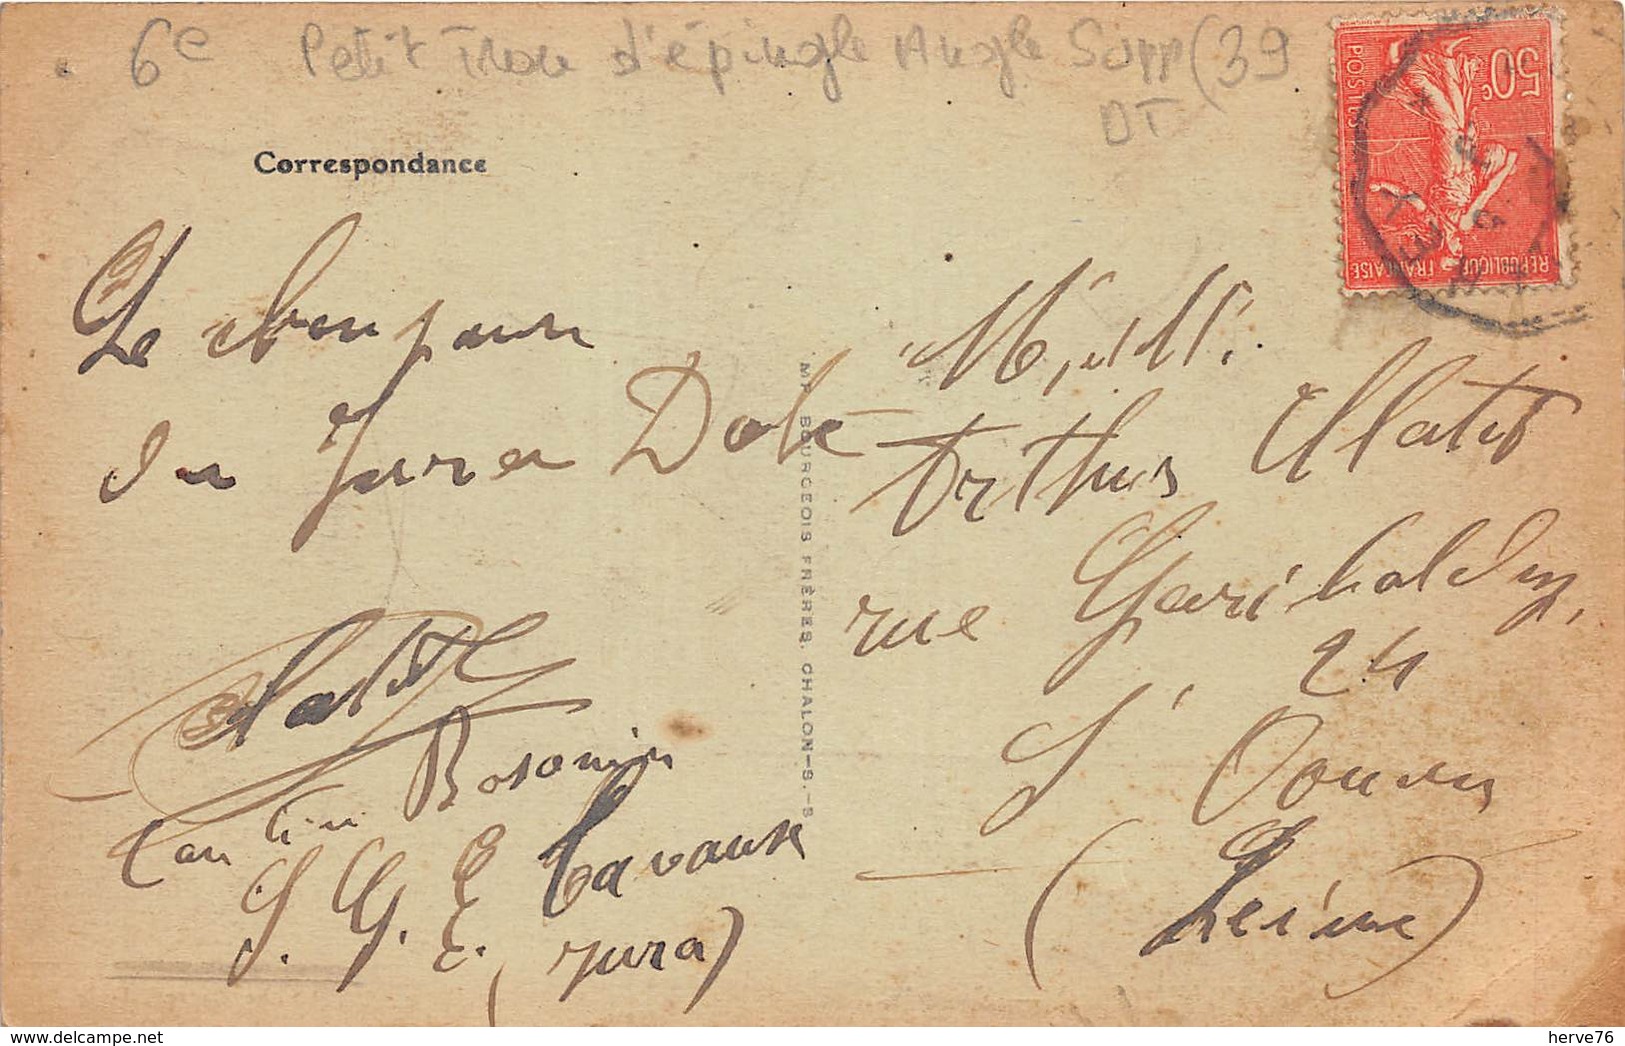 6e Petit Trou d'épingle Angle Supp (39
DT
Correspondance
50c
POSTES
REPUBLIQUE FRANÇAISE
Le bonjour
du Jura Dole
Cantine Bosonier
S. G. E. Tavaux
(Jura)
MP. BOURGEOIS FRÈRES, CHALON-S.-S.
M, et M.
Arthus
rue Garibaldy,
24
St Ouen
(Seine)
herve76